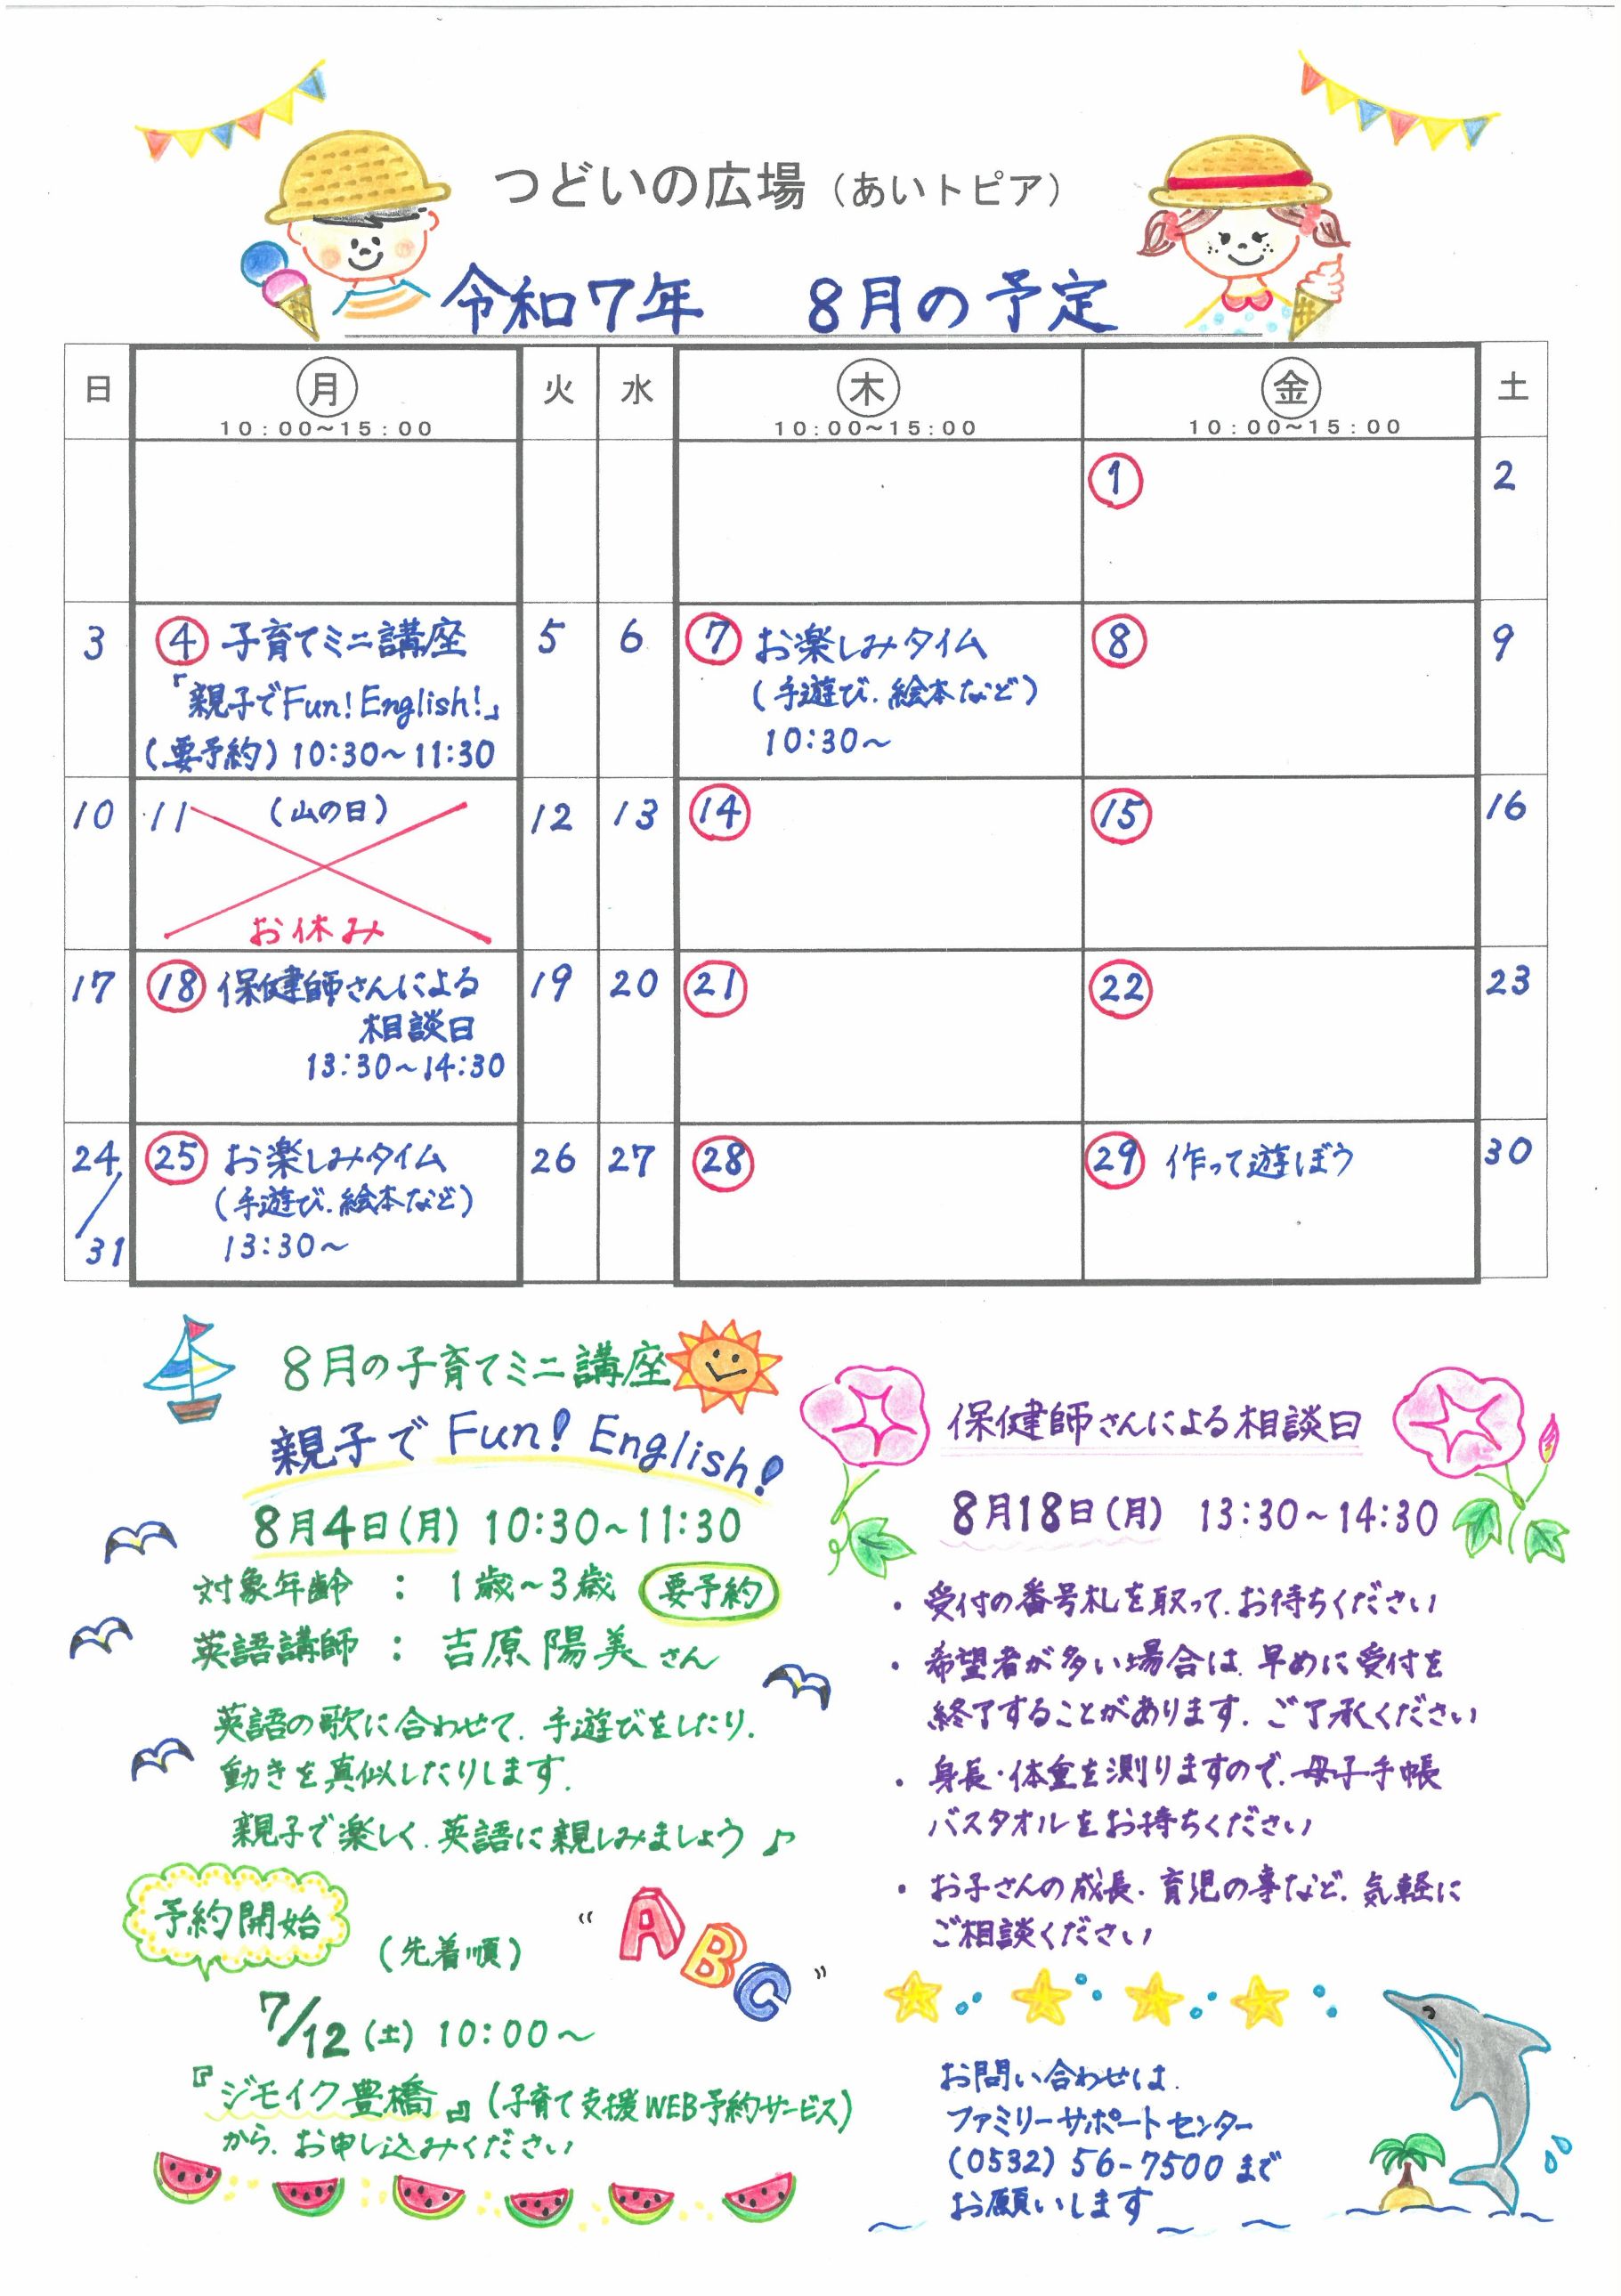 つどいの広場（あいトピア）
令和7年 8月の予定
日 月 火 水 木 金 土
10:00~15:00 10:00~15:00 10:00~15:00
1 2
3 4 子育てミニ講座 5 6 7 お楽しみタイム 8 9
「親子でFun! English!」 （手遊び、絵本など）
（要予約）10:30~11:30 10:30~
10 11 （山の日） 12 13 14 15 16
お休み
17 18 保健師さんによる 19 20 21 22 23
相談日
13:30~14:30
24 25 お楽しみタイム 26 27 28 29 作って遊ぼう 30
/ （手遊び、絵本など）
31 13:30~
8月の子育てミニ講座
親子で Fun! English!
8月4日(月) 10:30~11:30
対象年齢 : 1歳~3歳 要予約
英語講師 : 吉原陽美さん
英語の歌に合わせて、手遊びをしたり、
動きを真似したりします。
親子で楽しく、英語に親しみましょう♪
予約開始
（先着順）
"ABC"
7/12(土) 10:00~
『ジモイク豊橋』（子育て支援WEB予約サービス）
から、お申し込みください
保健師さんによる相談日
8月18日(月) 13:30~14:30
・受付の番号札を取って、お待ちください
・希望者が多い場合は、早めに受付を
終了することがあります。ご了承ください
・身長・体重を測りますので、母子手帳
バスタオルをお持ちください
・お子さんの成長・育児の事など、気軽に
ご相談ください
お問い合わせは、
ファミリーサポートセンター
(0532) 56-7500 まで
お願いします